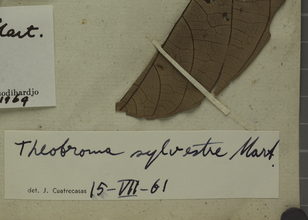 Mart.
odihardjo
1969
Theobroma sylvestre Mart.
det. J. Cuatrecasas 15-VII-61